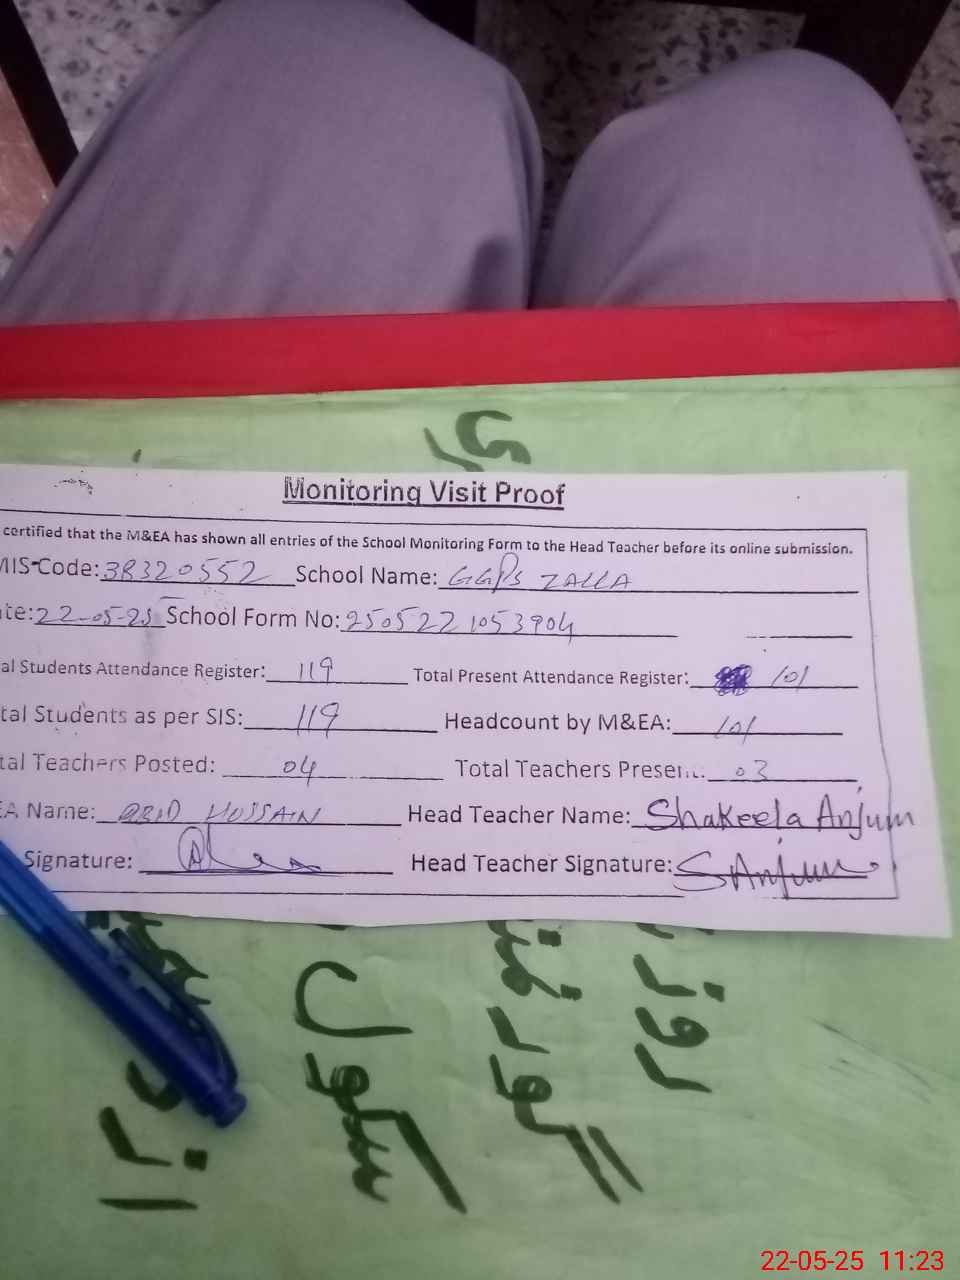 Monitoring Visit Proof
certified that the M&EA has shown all entries of the School Monitoring Form to the Head Teacher before its online submission.
MIS-Code: 38320552 School Name: GGPS ZALLA
te: 22-05-25 School Form No: 2505221053904
al Students Attendance Register: 119 Total Present Attendance Register: 101
tal Students as per SIS: 119 Headcount by M&EA: 101
tal Teachers Posted: 04 Total Teachers Present: 03
EA Name: ABID HUSSAIN Head Teacher Name: Shakeela Anjum
Signature: Head Teacher Signature: SAnjum
سکول
گورنمنٹ
روز
از
22-05-25 11:23